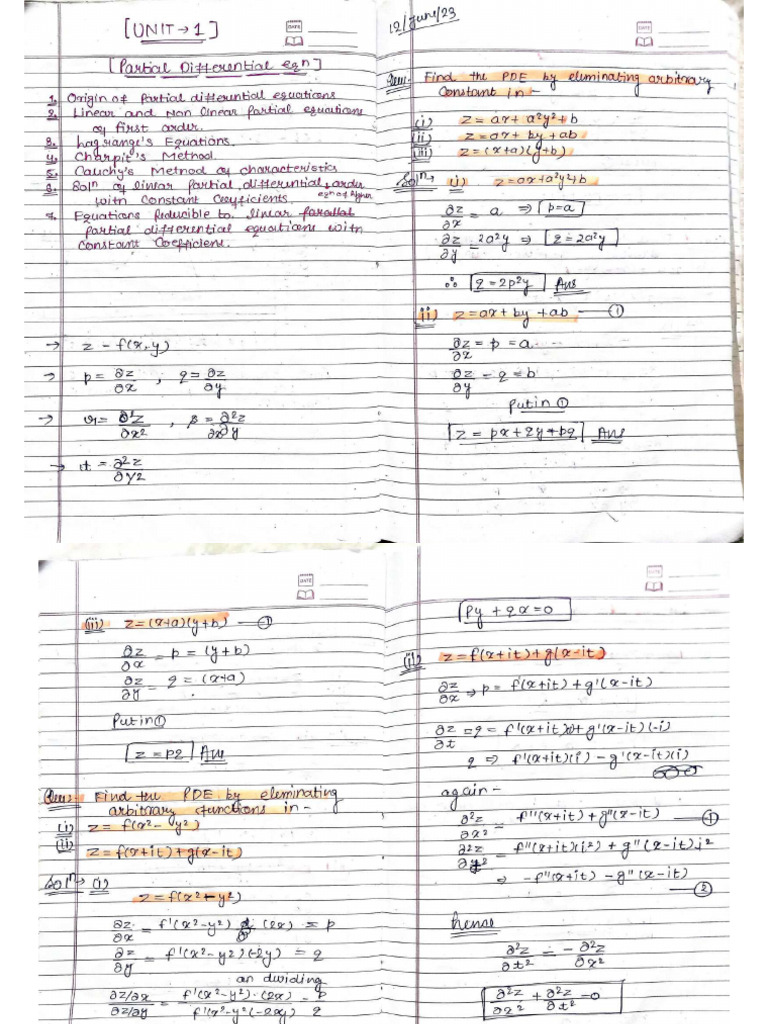 [UNIT → 1]
DATE
[Partial Differential eqn]
1. Origin of Partial differential equations
2. Linear and Non linear partial equations
of first order.
3. Lagrange's Equations.
4. Charpit's Method.
5. Cauchy's Method of characteristics
6. Soln of linear partial differential order
eqn of higher
with Constant Coefficients.
7. Equations Reducible to linear
partial differential equations with
Constant Coefficient.
→ z - f(x,y)
→ p = ∂z/∂x , q = ∂z/∂y
→ r = ∂²z/∂x² , s = ∂²z/∂x∂y
→ t = ∂²z/∂y²
12/June/23
DATE
Ques:- Find the PDE by eleminating arbitrary
Constant in :-
(i) z = ax + a²y² + b
(ii) z = ax + by + ab
(iii) z = (x+a)(y+b)
Soln → (i) z = ax + a²y² + b
∂z/∂x = a ⇒ p = a
∂z/∂y = 2a²y ⇒ q = 2a²y
∴ q = 2p²y Ans
(ii) z = ax + by + ab — ①
∂z/∂x = p = a
∂z/∂y - q = b
Put in ①
z = px + qy + pq Ans
DATE
(iii) z = (x+a)(y+b) — ①
∂z/∂x = p = (y+b)
∂z/∂y = q = (x+a)
Put in ①
z = pq Ans
Ques:- Find the PDE by eleminating
arbitrary functions in -
(i) z = f(x² - y²)
(ii) z = f(x+it) + g(x-it)
Soln → (i)
z = f(x² - y²)
∂z/∂x = f'(x²-y²) (2x) = p
∂z/∂y = f'(x²-y²)(-2y) = q
on dividing
∂z/∂x / ∂z/∂y = f'(x²-y²)·(2x) / f'(x²-y²(-2y) = p/q
DATE
py + qx = 0
(ii) z = f(x+it) + g(x-it)
∂z/∂x ⇒ p = f'(x+it) + g'(x-it)
∂z/∂t = q = f'(x+it)(i) + g'(x-it)(-i)
q ⇒ f'(x+it)(i) - g'(x-it)(i)
again -
∂²z/∂x² = f''(x+it) + g''(x-it) — ①
∂²z/∂t² = f''(x+it)(i²) + g''(x-it)i²
⇒ -f''(x+it) - g''(x-it)
— ②
hense
∂²z/∂t² = -∂²z/∂x²
∂²z/∂x² + ∂²z/∂t² = 0